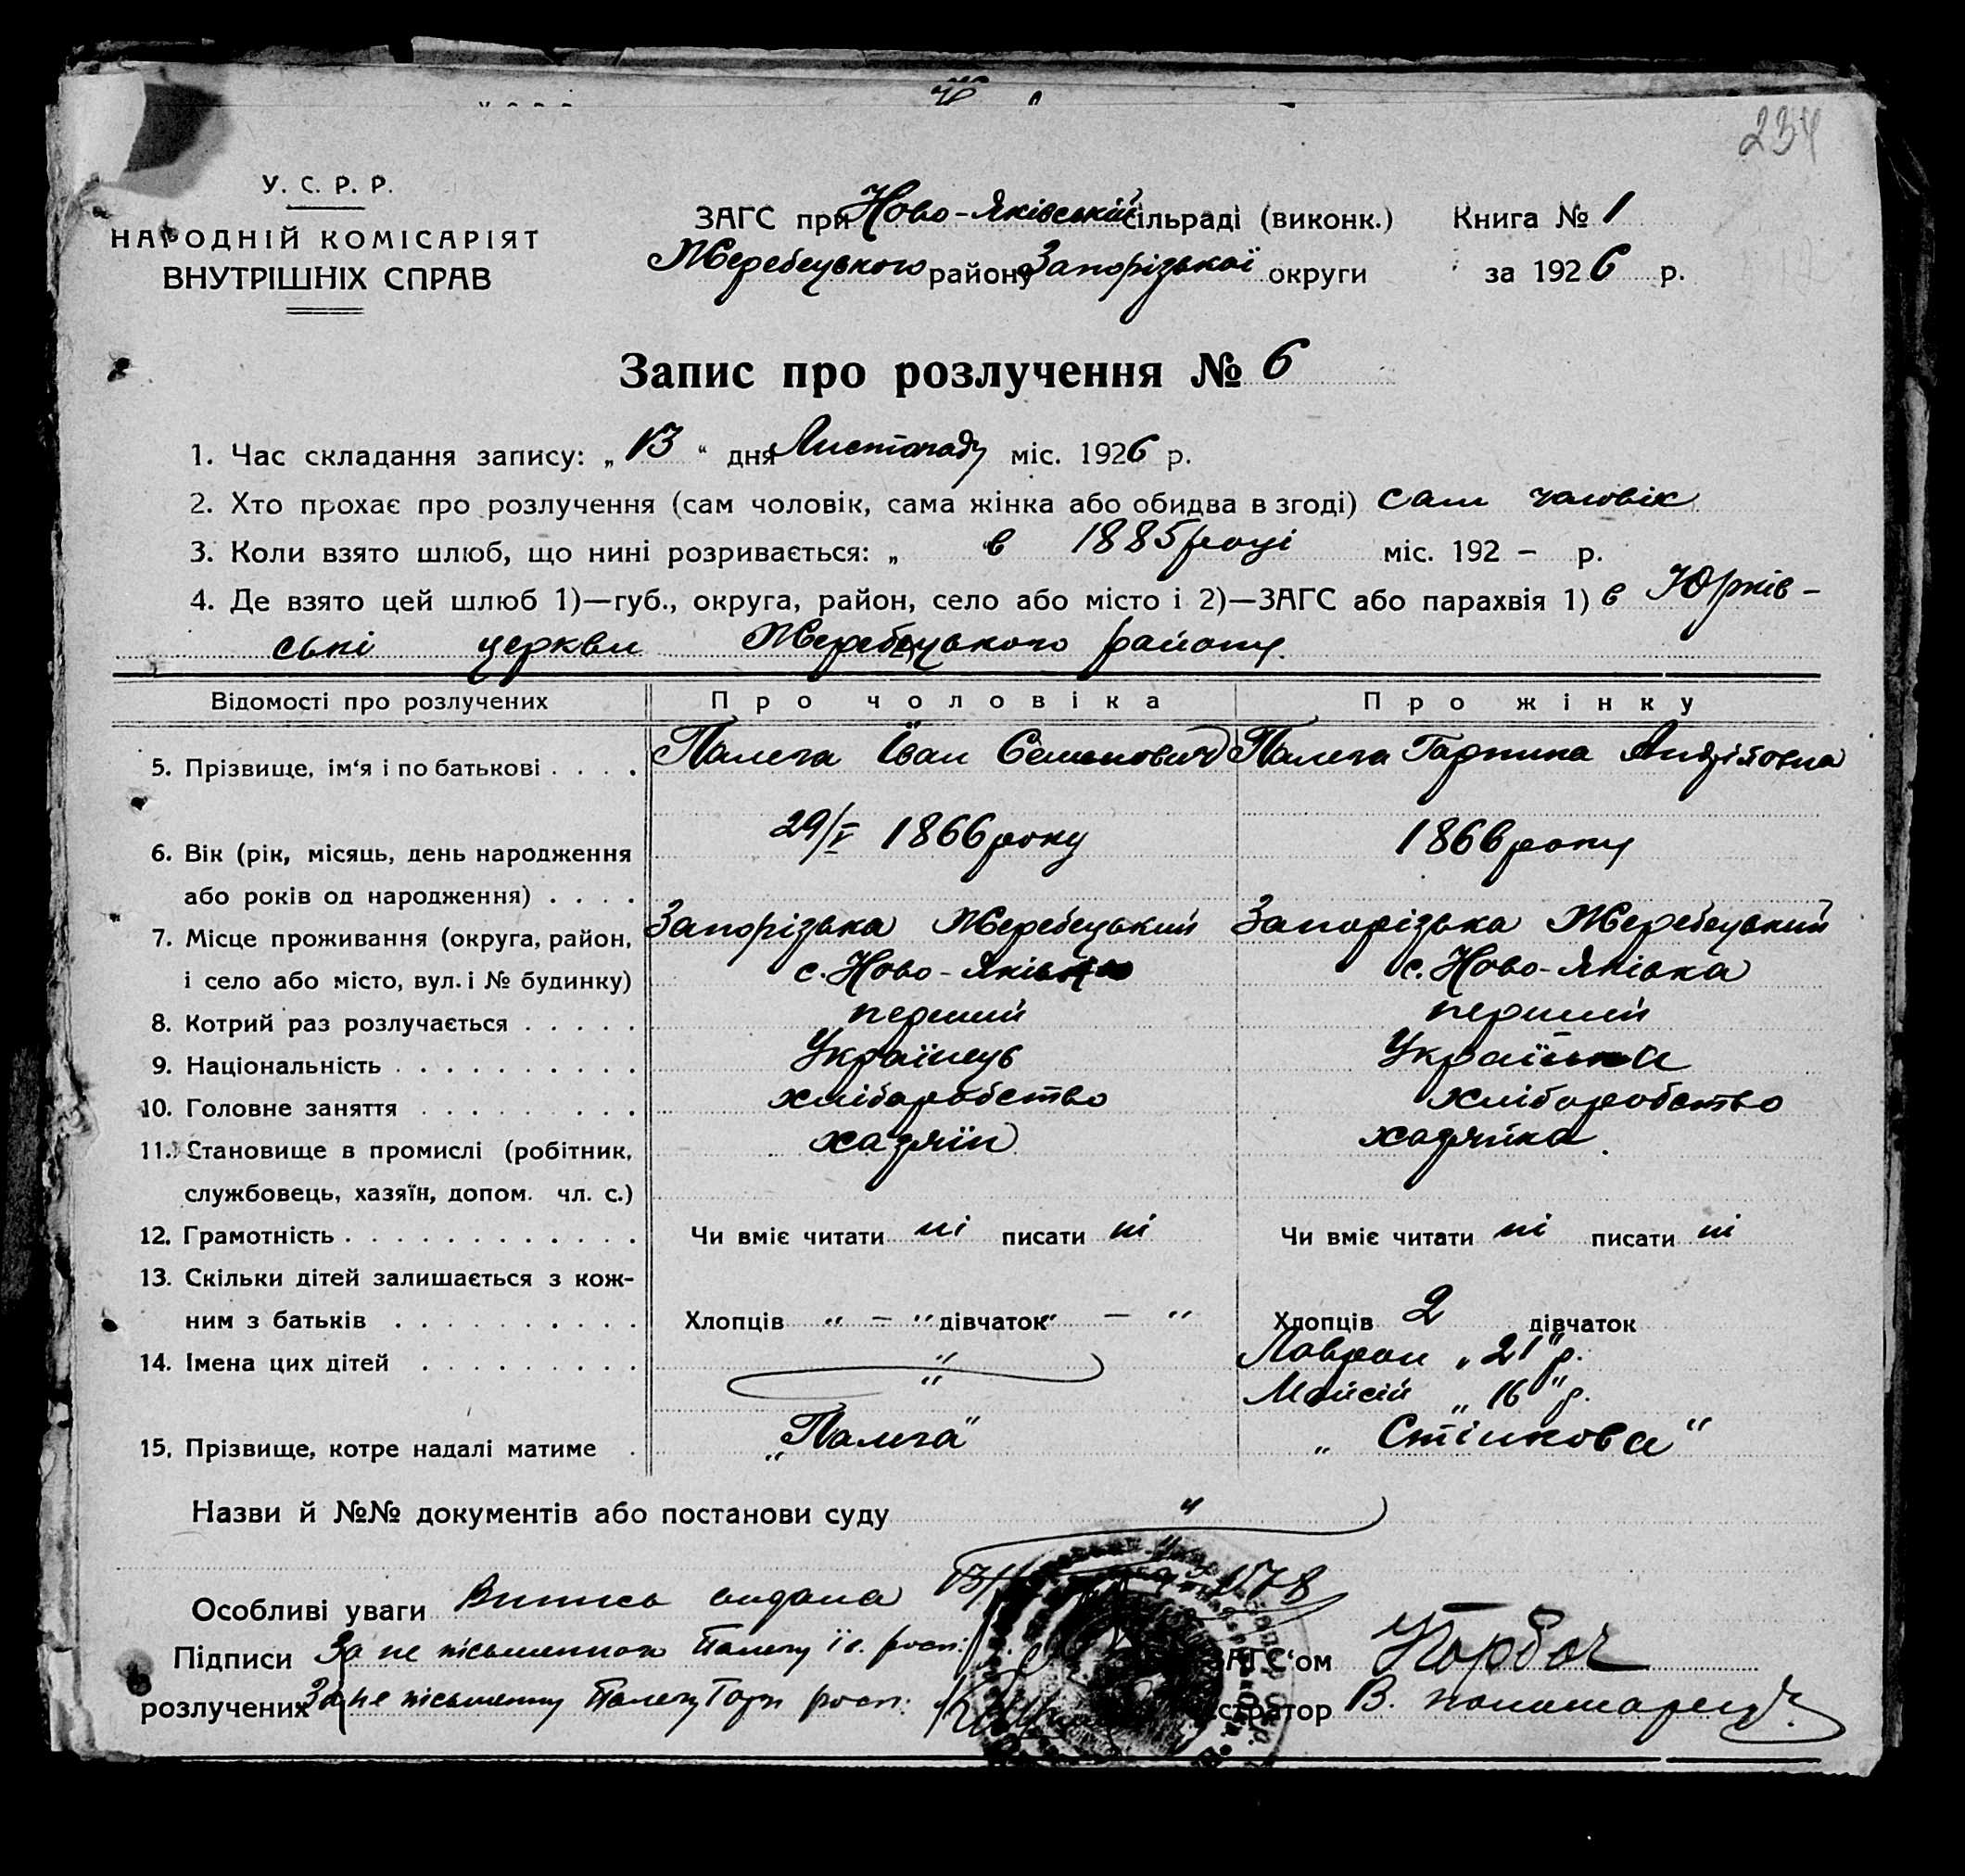 234
У. С. Р. Р.
НАРОДНІЙ КОМІСАРІЯТ
ВНУТРІШНІХ СПРАВ
ЗАГС при Ново-Яківській сільраді (виконк.) Книга № 1
Жеребецького району Запорізької округи за 1926 р.
Запис про розлучення № 6
1. Час складання запису: „ 13 “ дня Листопаду міс. 1926 р.
2. Хто прохає про розлучення (сам чоловік, сама жінка або обидва в згоді) сам чоловік
3. Коли взято шлюб, що нині розривається: „ в 1885 році міс. 192 – р.
4. Де взято цей шлюб 1)—губ., округа, район, село або місто і 2)—ЗАГС або парахвія 1) в Юрків-
ські церкви Жеребецького району.
Відомості про розлучених Про чоловіка Про жінку
5. Прізвище, ім‘я і по батькові . . . . Палега Іван Семенович Палега Гарпина Андріївна
6. Вік (рік, місяць, день народження 29/V 1866 року 1866 року
або років од народження) . . . .
7. Місце проживання (округа, район, Запорізька Жеребецький Запорізька Жеребецький
і село або місто, вул. і № будинку) с. Ново-Яківка с. Ново-Яківка
8. Котрий раз розлучається . . . . . перший перший
9. Національність . . . . . . . . . . Українець Українка
10. Головне заняття . . . . . . . . . хліборобство хліборобство
11. Становище в промислі (робітник, хазяїн хазяйка.
службовець, хазяїн, допом. чл. с.)
12. Грамотність . . . . . . . . . . . . Чи вміє читати ні писати ні Чи вміє читати ні писати ні
13. Скільки дітей залишається з кож-
ним з батьків . . . . . . . . . . Хлопців „ — “ дівчаток „ — “ Хлопців 2 дівчаток
14. Імена цих дітей . . . . . . . . . " Лаврон „21“ р.
" Мойсій „16“ р.
15. Прізвище, котре надалі матиме . „Палега“ „Стінкова“
Назви й №№ документів або постанови суду "
Особливі уваги Випись видана 13/ 1578
Підписи За не письменного Палегу І. С. росп:
розлучених За не письменну Палегу Гарп росп:
АГС‘ом
стратор В.